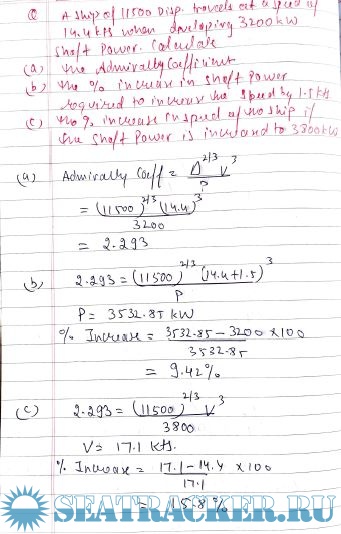 Q A ship of 11500 Disp. travels at a speed of
14.4 kts when developing 3200 kW
Shaft Power. Calculate
(a) The Admirally Coefficient
(b) The % increase in Shaft Power
required to increase the speed by 1.5 kts
(c) The % increase in speed of the ship if
the Shaft Power is increased to 3800 kW
(a) Admirally Coeff = Δ^2/3 V^3
P
= (11500)^2/3 (14.4)^3
3200
= 2.293
(b) 2.293 = (11500)^2/3 (14.4+1.5)^3
P
P = 3532.85 kW
% Increase = 3532.85 - 3200 × 100
3532.85
= 9.42%
(c) 2.293 = (11500)^2/3 V^3
3800
V = 17.1 kts.
% Increase = 17.1 - 14.4 × 100
17.1
= 15.8%
SEATRACKER.RU